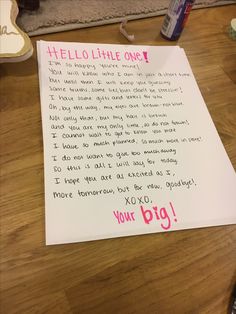 HELLO LITTLE ONE!
I'm so happy you're mine!
You will know who I am in just a short time,
but until then I will keep you guessing
Some truths, some lies, but don't be stressin'!
I have some gifts and letters for you
Oh, by the way, my eyes are brown not blue.
Not only that, but my hair is brown
and you are my only little, so do not frown!
I cannot wait to get to know you more
I have so much planned, so much more in store!
I do not want to give too much away
So this is all I will say for today.
I hope you are as excited as I,
More tomorrow, but for now, goodbye!
XOXO,
Your big!